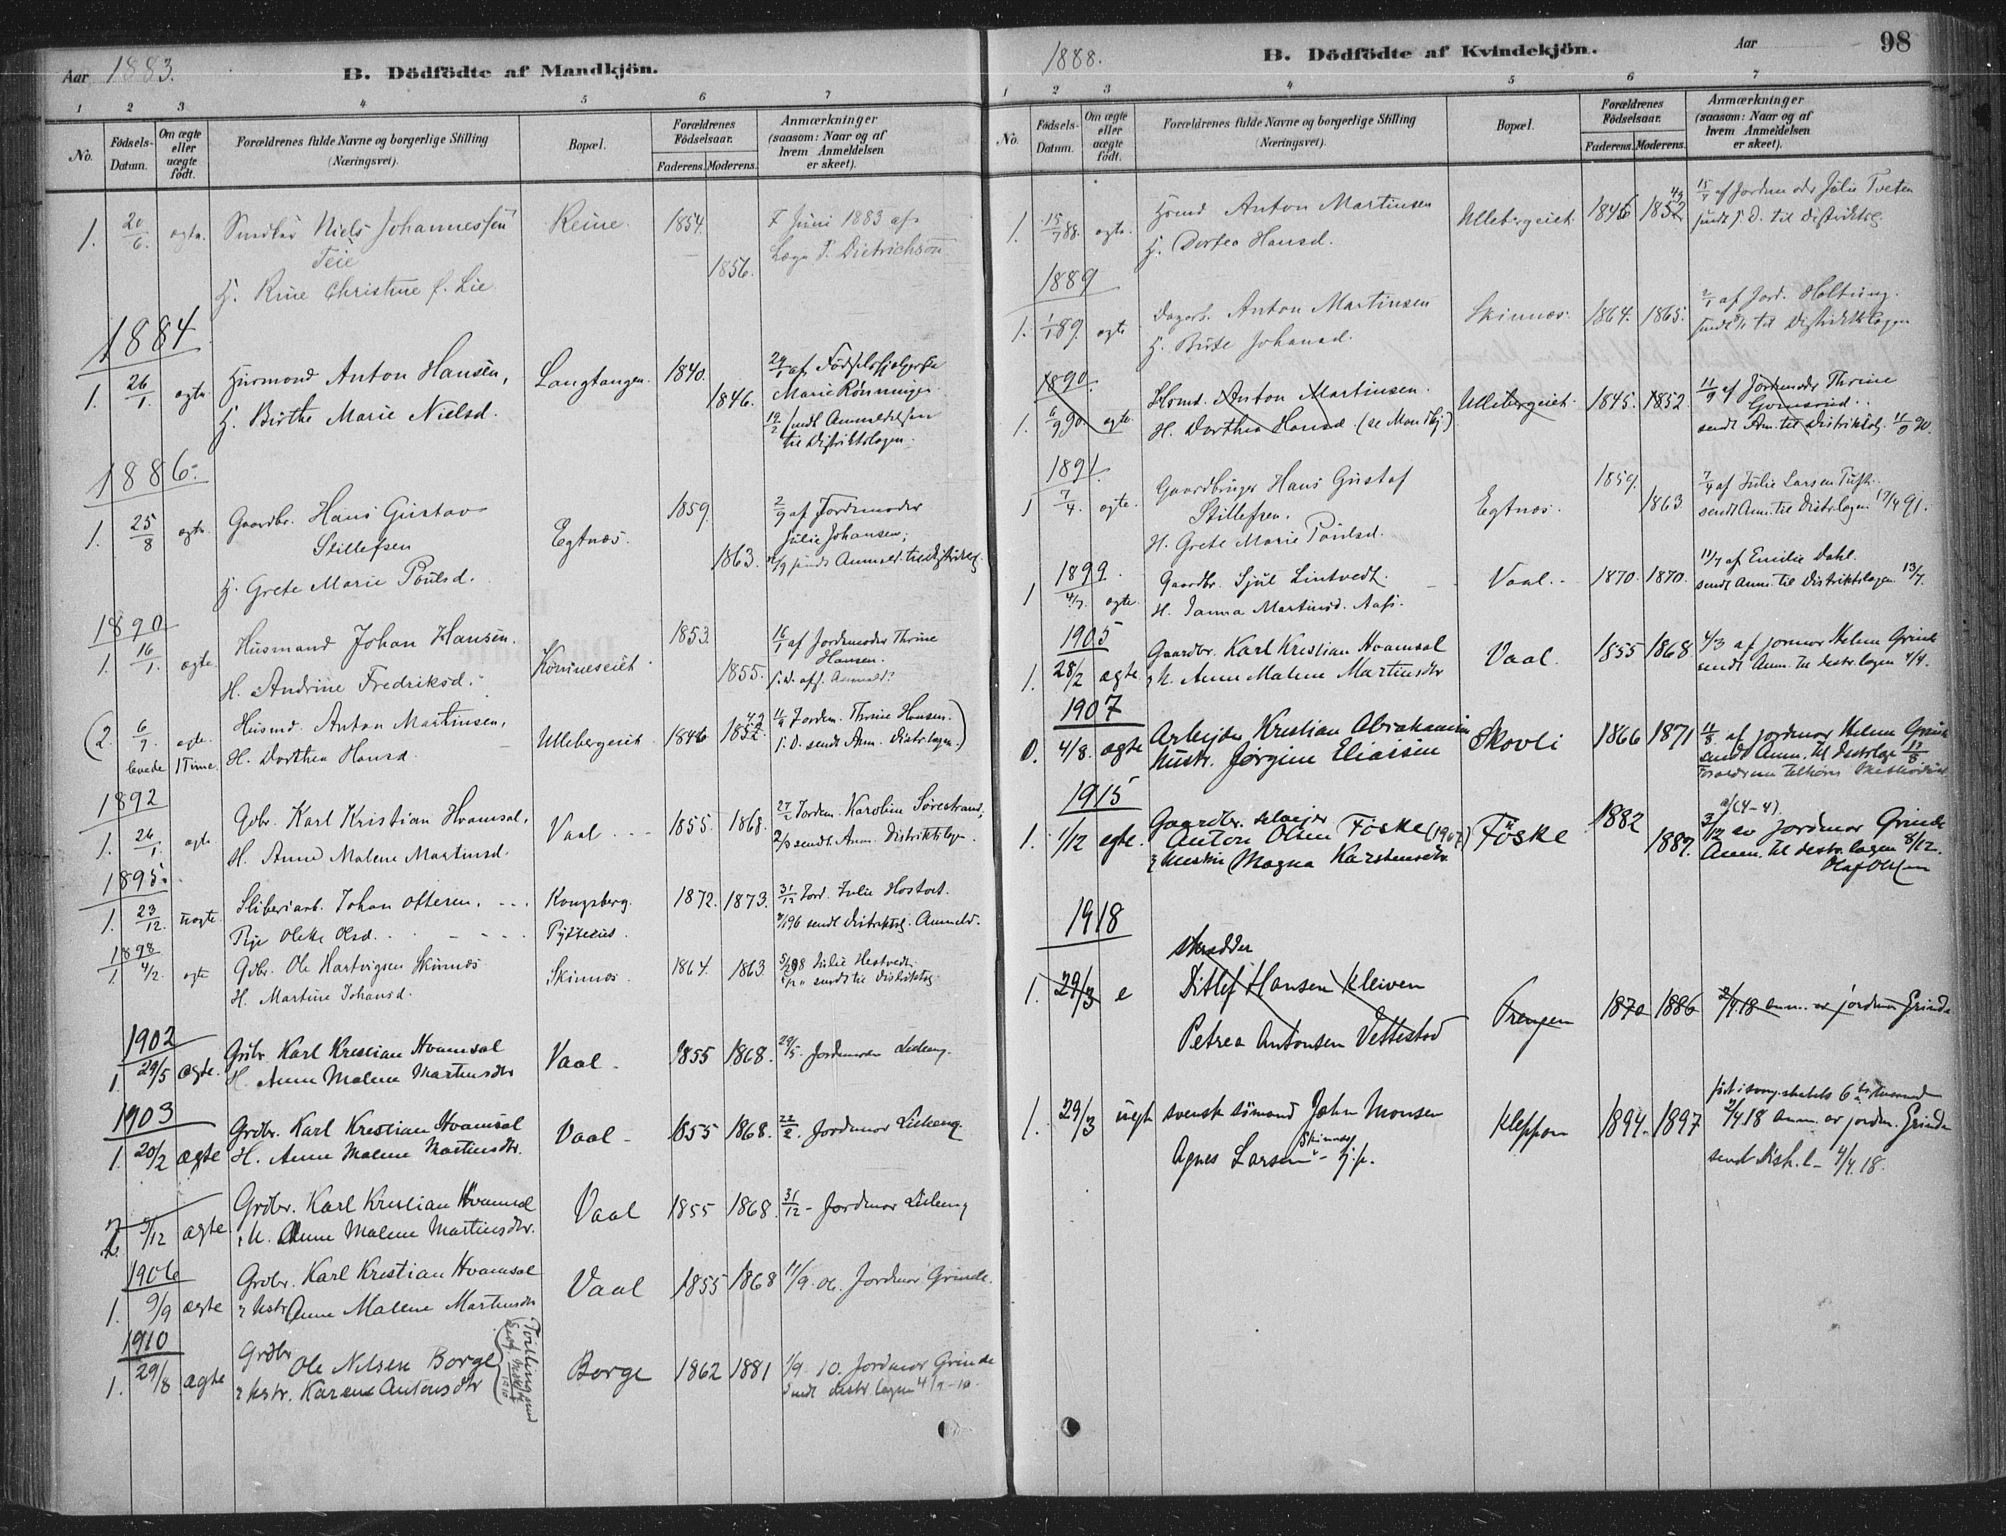 Aar 1883.
B. Dödfödte af Mandkjön.
1 2 3 4 5 6 7
No.
Fødsels-Datum.
Om ægte eller uægte født.
Forældrenes fulde Navne og borgerlige Stilling
(Næringsvei).
Bopæl.
Forældrenes Fødselsaar.
Faderens. Moderens.
Anmærkninger
(saasom: Naar og af
hvem Anmeldelsen
er skeet).
1. 20/6. ægte. Niels Johannessen Reine. 1854. 7 Juni 1883 af
Teie 1856. Læge Dietrichson
H. Christine f. Lie
1884.
1. 26/1. ægte Husmand Anton Hansen, Langtangen. 1840. 29/1 af Fødselshjelperske
H. Birthe Marie Nielsd. 1846. Marie Rønningen.
19/2 sendt Anmeldelsen
til Distriktslægen.
1886.
1. 25/8 ægte Gaardbr. Hans Gustav Egtnæs. 1859. 2/9 af Jordmoder
Stillefsen 1863. Julie Johansen;
H. Grete Marie Poulsd. sendt Anmeld. til Distriktsl.
1890
1. 16/1. ægte Husmand Johan Hansen. 1853. 16/1 af Jordmoder Thrine
H. Andrine Fredriksd. 1855. Hansen.
(2. 6/9. ægte. Husmd. Anton Martinsen, Ullebergeiet 1846 1852. 11/9 Jordm. Thrine Hansen.
levede 1 Time. H. Dorthea Hansd. S. D. sendt Anm. Distr.lægen.)
1892
1. 26/1. ægte Gdbr. Karl Kristian Hvamsal. Vaal 1855. 1868. 27/2 Jordm. Karoline Sørestrand;
H. Anne Malene Martinsd. sendt Anm. Distriktslæge.
1895.
1. 23/12. uægte Sliberiarb. Johan Ottersen. Kongsberg. 1872. 1873. 31/12 Jord. Julie
Pige Olette Olsd. sendt Distriktsl. Anmeld.
1898
1. 4/2. ægte Gdbr. Ole Hartvigsen Skinnæs Skinnæs 1864. 1863 Julie Hestvedt.
H. Martine Johansd. sendt til Distriktslæg
1902
1. 29/5 ægte. Grdbr. Karl Kristian Hvamsal Vaal 1855 1868. 29/5. Jordmoder Lideng.
H. Anne Malene Martinsdtr
1903
1. 20/2 ægte Grdbr. Karl Kristian Hvamsal Vaal 1855 1868. 22/2. Jordmor Lideng
H. Anne Malene Martinsdtr.
2. 5/12 ægte Grdbr. Karl Kristian Hvamsal Vaal 1855 1868. 31/12 - Jordmor Lideng
H. Anne Malene Martinsdtr.
1906
1. 9/9 ægte Grdbr. Karl Kristian Hvamsal Vaal 1855 1868 11/9. 06. Jordmor Grinde.
& hstr Anne Malene Martinsdtr
1910
1. 29/8 ægte Grdbr Ole Nilsen Borge Borge 1862 1881 1/9. 10. Jordmor Grinde
& hstr. Karen Antonsdtr Sendt distr.lægen 4/9-10.
Tvilling med
1910
98
1888.
B. Dödfödte af Kvindekjön.
Aar
1 2 3 4 5 6 7
No.
Fødsels-Datum.
Om ægte eller uægte født.
Forældrenes fulde Navne og borgerlige Stilling
(Næringsvei).
Bopæl.
Forældrenes Fødselsaar.
Faderens. Moderens.
Anmærkninger
(saasom: Naar og af
hvem Anmeldelsen
er skeet).
1. 15/7 88. ægte. Husmd Anton Martinsen Ullebergeiet 1846 1852 15/7 af Jordmoder Julie Tveten
H. Dortea Hansd. sendt s. D. til Distriktslg.
1889
1. 1/1 89. ægte Dagarb. Anton Martinsen Skinnæs. 1864. 1865. 2/1 af Jord. Holtung.
H. Birte Johansd. sendt til Distriktslægen
1890.
1. 6/9 90 ægte. Husmd. Anton Martinsen. Ullebergeiet. 1845. 1852. 11/9 af Jordmoder Thrine
H. Dorthea Hansd. (se Mandkj.) sendt Am. til Distriktslg. 11/9 90.
1891.
1 7/4. ægte. Gaardbruger Hans Gustaf Egtnæs. 1859. 7/4 af Julie Larsen Tufte.
Stillefsen. 1863. sendt Anm. til Distrlægen 17/4 91.
H. Grete Marie Poulsd.
1899.
1 4/7. ægte. Gaardbr. Sjul Lintvedt. Vaal. 1870. 1870. 11/7 af Emilie Dahl.
H. Janna Martinsd. Aafs. sendt Anm. til Distriktslægen 13/7.
1905
1. 28/2 ægte Gaardbr. Karl Kristian Hvamsal Vaal. 1855 1868. 4/3 af jormor Helene Grinde
& h. Anne Malene Martinsdtr sendt Anm. til distr.lægen 4/4.
1907
0. 4/8. ægte Arbejder Kristian Abrahamsen Skovli 1866 1871 11/8. af jordmor Helene Grinde
Hustr. Jørgine Eliassen sendt Anm. til distrlæge 17/8
1915
1. 1/12 egte. Gaardbr. selveier Føske 1882 3/12 av jordmor Grinde
Anton Olsen Føske (1907) 1887. Anm. til distr.lægen 8/12.
& hustru Magna Karstensdtr. Olaf Olsen
1918
1. 29/3 e skrædder
Ditlef Hansen Kleiven 1870 1886 2/4.18 anm. av jordmor Grinde
Petrea Antonsen Vettestad
1. 29/3 uegt svensk sømand John Monsen Kleppen 1894. 1897 født i svangerskabets 6te maaned
Agnes Larsen Skinnes - 2/4.18 anm. av jordm. Grinde
sendt Distr.l - 4/4.18.